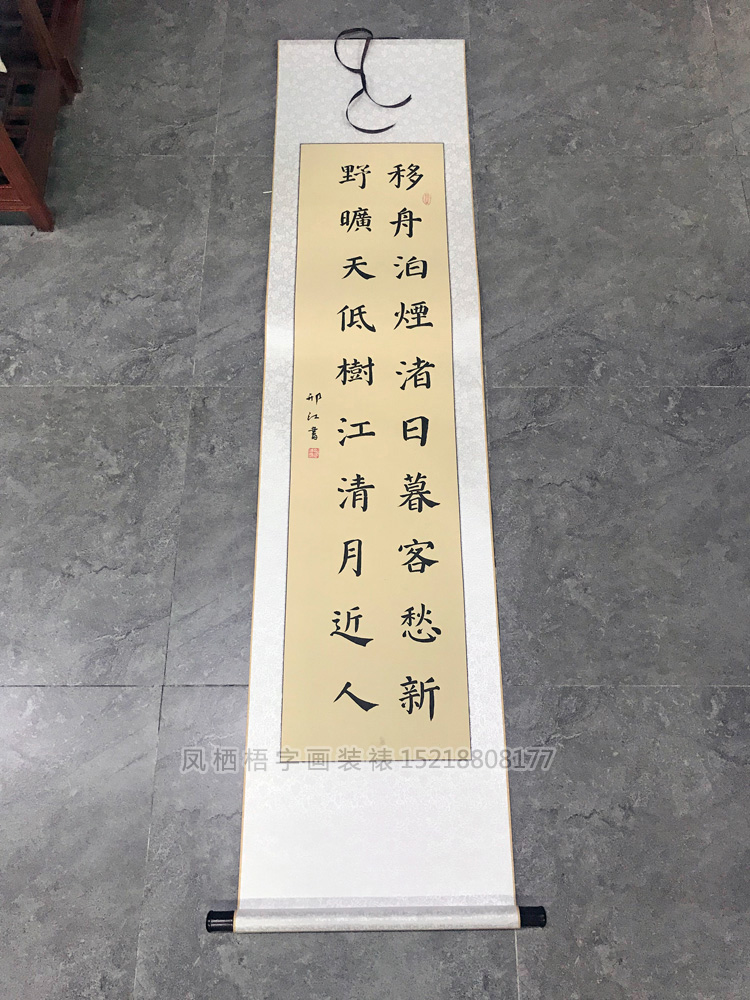 移舟泊煙渚日暮客愁新
野曠天低樹江清月近人
邢江書
凤栖梧字画装裱15218808177